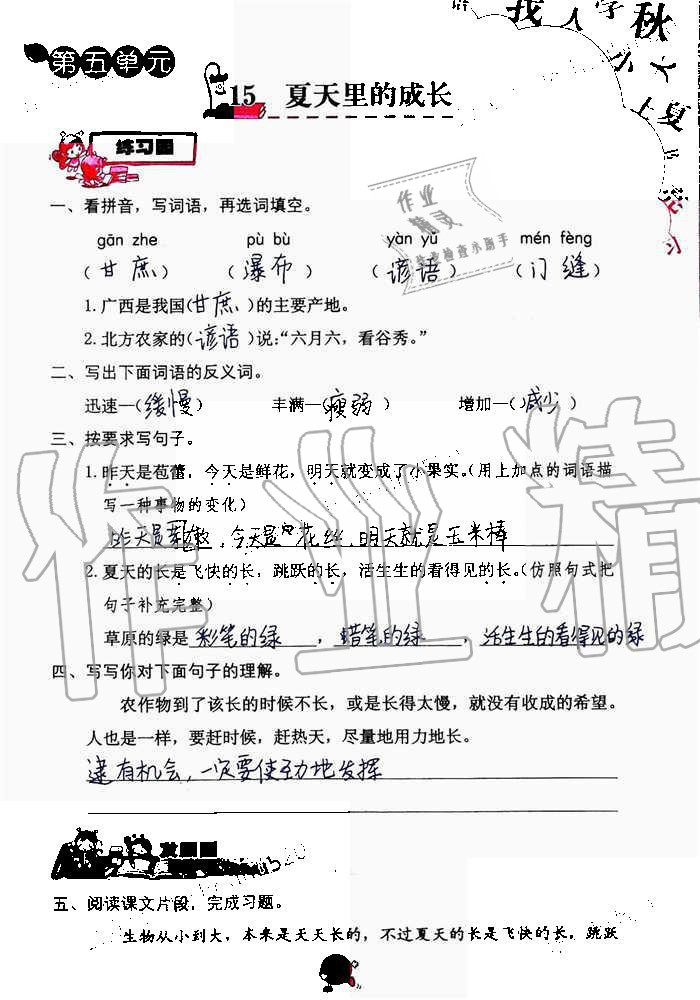 我 人 学 秋
小 大
上 夏
第五单元
15 夏天里的成长
练习圃
作业
精灵
作业检查小助手
一、看拼音，写词语，再选词填空。
gān zhe pù bù yàn yǔ mén fèng
（甘蔗）（瀑布）（谚语）（门缝）
1.广西是我国（甘蔗）的主要产地。
2.北方农家的（谚语）说：“六月六，看谷秀。”
二、写出下面词语的反义词。
迅速—（缓慢） 丰满—（瘦弱） 增加—（减少）
三、按要求写句子。
1.昨天是苞蕾，今天是鲜花，明天就变成了小果实。（用上加点的词语描
写一种事物的变化）
昨天是 今天是 花丝，明天就是玉米棒
2.夏天的长是飞快的长，跳跃的长，活生生的看得见的长。（仿照句式把
句子补充完整）
草原的绿是彩笔的绿，蜡笔的绿，活生生的看得见的绿
四、写写你对下面句子的理解。
农作物到了该长的时候不长，或是长得太慢，就没有收成的希望。
人也是一样，要赶时候，赶热天，尽量地用力地长。
逮有机会，一定要使劲地发挥
作业精
五、阅读课文片段，完成习题。
生物从小到大，本来是天天长的，不过夏天的长是飞快的长，跳跃